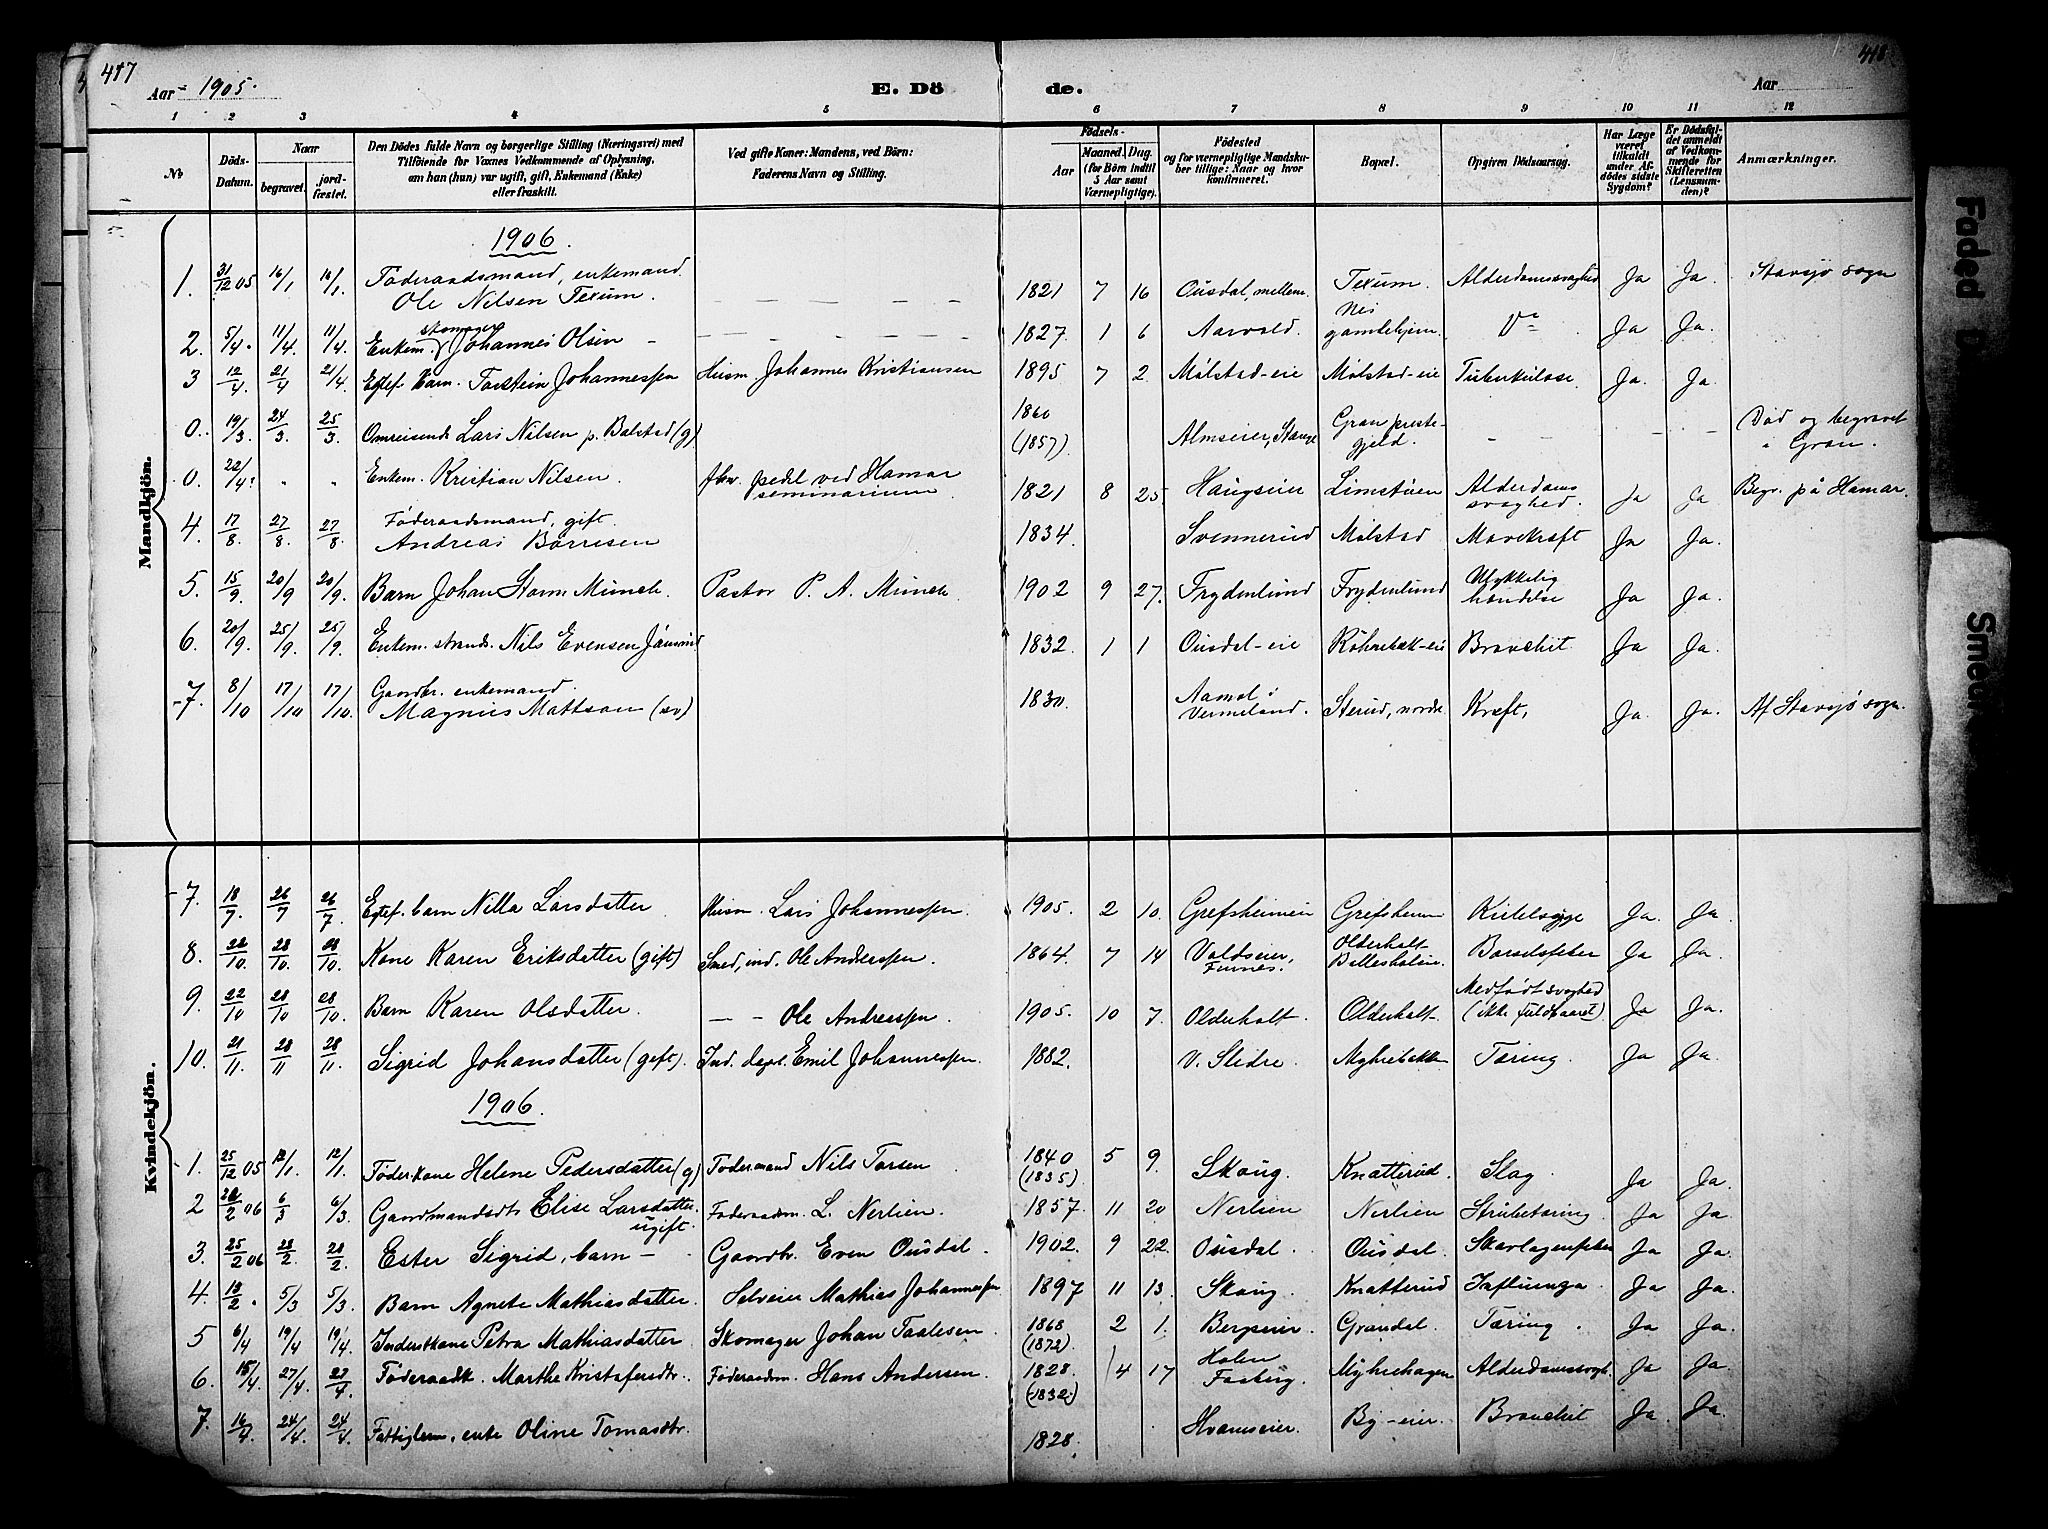 417
418
Aar 1905.
E. Dö
de.
Aar
1 2 3 4 5 6 7 8 9 10 11 12
No
Döds-Datum.
Naar
begravet.
jord-fæstet.
Den Dödes fulde Navn og borgerlige Stilling (Næringsvei) med
Tilföiende for Voxnes Vedkommende af Oplysning,
om han (hun) var ugift, gift, Enkemand (Enke)
eller fraskilt.
Ved gifte Koner: Mandens, ved Börn:
Faderens Navn og Stilling.
Födsels-
Aar
Maaned. Dag.
(for Börn indtil
5 Aar samt
Værnepligtige).
Födested
og for værnepligtige Mandskaber tillige: Naar og hvor
konfirmeret.
Bopæl.
Opgiven Dödsaarsag.
Har Læge
været
tilkaldt
under Afdödes sidste
Sygdom?
Er Dödsfaldet anmeldt
af Vedkommende for
Skifteretten
(Lensmanden)?
Anmærkninger.
Mandkjön.
1906.
1. 31/12 05 16/1 16/1 Föderaadsmand, enkemand. Ole Nilsen Texum. 1821 7 16 Ousdal, mellem Texum. Alderdomssvaghed Ja Ja Stavsjø sogn
2. 5/4. 11/4. 11/4. Enkem. skomager Johannes Olsen 1827. 1 6 Aarvold. Nes gamlehjem. Do Ja Ja.
3 12/4. 21/4 21/4. Egtef. barn. Torstein Johannessen Husm Johannes Kristiansen 1895 7 2. Målstad-eie Målstad-eie Tuberkulose. Ja. Ja.
0. 19/3. 24/3. 25/3. Omreisende Lars Nilsen p. Balstad (g) 1860 (1857) Almseier, Stange Gran prestegjeld. Död og begravet i Gran.
0. 22/4. Enkem. Kristian Nilsen. fhv. pedel ved Hamar seminarium. 1821 8 25 Haugseier Limstuen Alderdoms svaghed. Ja Ja Begr. på Hamar.
4. 17/8. 27/8. 27/8 Föderaadsmand, gift. Andreas Börresen 1834. Svennerud Målstad Mavekræft Ja Ja.
5. 15/9. 20/9 20/9. Barn Johan Storm Munch. Pastor P. A. Munch. 1902 9 27. Frydenlund Frydenlund Ulykkelig hændelse Ja Ja.
6. 20/9. 25/9. 25/9. Enkem. strands. Nils Evensen 1832. 1 1 Ousdal-eie Röhnebæk-eie Bronchit. Ja Ja.
7. 8/10 17/10 17/10. Gaardbr. enkemand. Magnus Mattson (sv) 1830. Aamol i Vermeland. Sterud, nordre Kræft, Ja. Ja. Af Stavsjø sogn.
Kvindekjön.
7. 18/7. 26/7 26/7. Egtef. barn Nilla Larsdatter Husm. Lars Johannessen. 1905. 2 10. Grefsheimeie Grefsheim Kirtelsyge Ja. Ja.
8. 22/10. 28/10. 28/10. Kone Karen Eriksdatter (gift) Smed, ind. Ole Anderssen. 1864. 7 14 Voldseier, Furnes. Olderholt- Barselfeber Ja Ja.
9. 22/10 28/10 28/10. Barn Karen Olsdatter. — - Ole Andreassen. 1905. 10 7. Olderholt. Olderholt. Medfödt svaghed (ikke fuldbaaret) Ja Ja.
10. 21/11. 28/11 28/11. Sigrid Johansdatter (gift). Ind. Emil Johannessen. 1882. V. Slidre. Myhrebakken Tæring. Ja Ja.
1906.
1. 25/12 05 12/1. 12/1. Föderkone Helene Pedersdatter (g) Födermand Nils Torsen 1840 (1835) 5 9. Skoug. Knatterud. Slag. Ja Ja.
2 26/2 06 6/3 6/3. Gaardmandsdtr Elise Larsdatter, ugift. Föderaadm. L. Nerlien. 1857. 11 20 Nerlien Nerlien Strubetæring. Ja Ja.
3. 25/2 06 28/2. 28/2. Ester Sigrid, barn — Gaardbr. Even Ousdal. 1902. 9 22. Ousdal. Ousdal. Skarlagensfeber Ja Ja.
4. 13/2. 5/3 5/3. Barn Agnete Mathiasdatter. Selveier Mathias Johannessen 1897 11 13. Skoug. Knatterud Influenza. Ja Ja.
5 6/4 19/4 19/4. Inderstkone Petra Mathiasdatter Skomager Johan Taalesen 1868 (1872) 2 1. Bergseier. Grandal. Tæring. Ja Ja.
6. 15/4. 27/4. 27/4. Föderaadk. Marthe Kristofersdtr. Föderaadm. Hans Andersen. 1828 (1832) 4 17 Holen Faaberg. Myhrehagen Alderdomssvagh. Ja Ja.
7. 16/4. 24/4. 24/4. Fattiglem, enke Oline Tomasdtr. 1828. Hvamseier. By-eier. Bronchit Ja. Ja.
Faded D
Sme